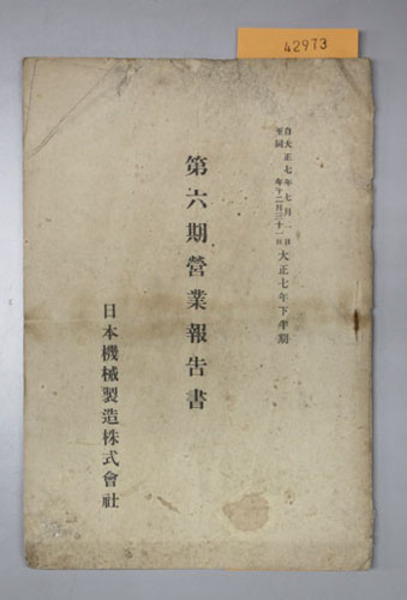 42973
自大正七年七月一日
至同 年十二月三十一日
大正七年下半期
第六期營業報告書
日本機械製造株式會社